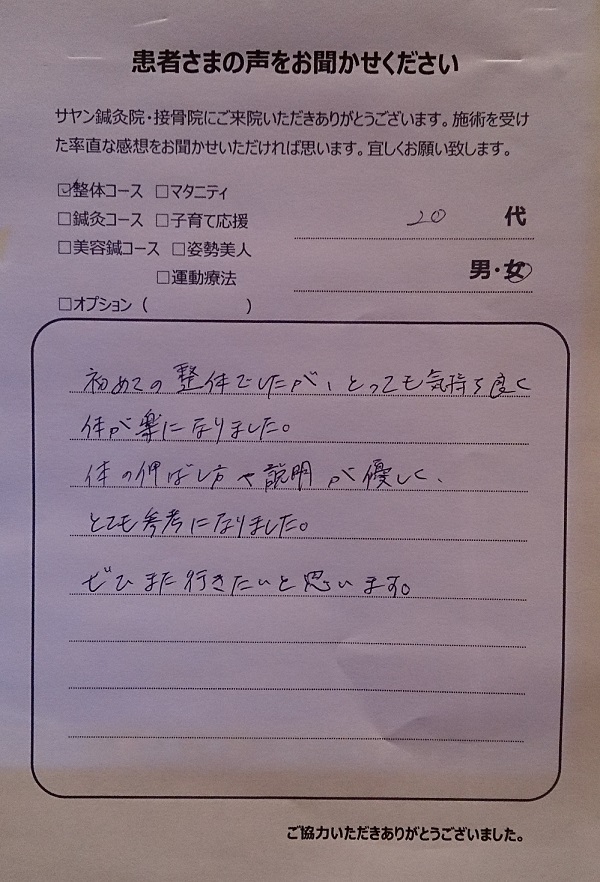 患者さまの声をお聞かせください
サヤン鍼灸院・接骨院にご来院いただきありがとうございます。施術を受け
た率直な感想をお聞かせいただければ思います。宜しくお願い致します。
☑整体コース □マタニティ
□鍼灸コース □子育て応援
20 代
□美容鍼コース □姿勢美人
男・女
□運動療法
□オプション（ ）
初めての整体でしたが、とっても気持ち良く
体が楽になりました。
体の伸ばし方や説明が優しく、
とても参考になりました。
ぜひまた行きたいと思います。
ご協力いただきありがとうございました。